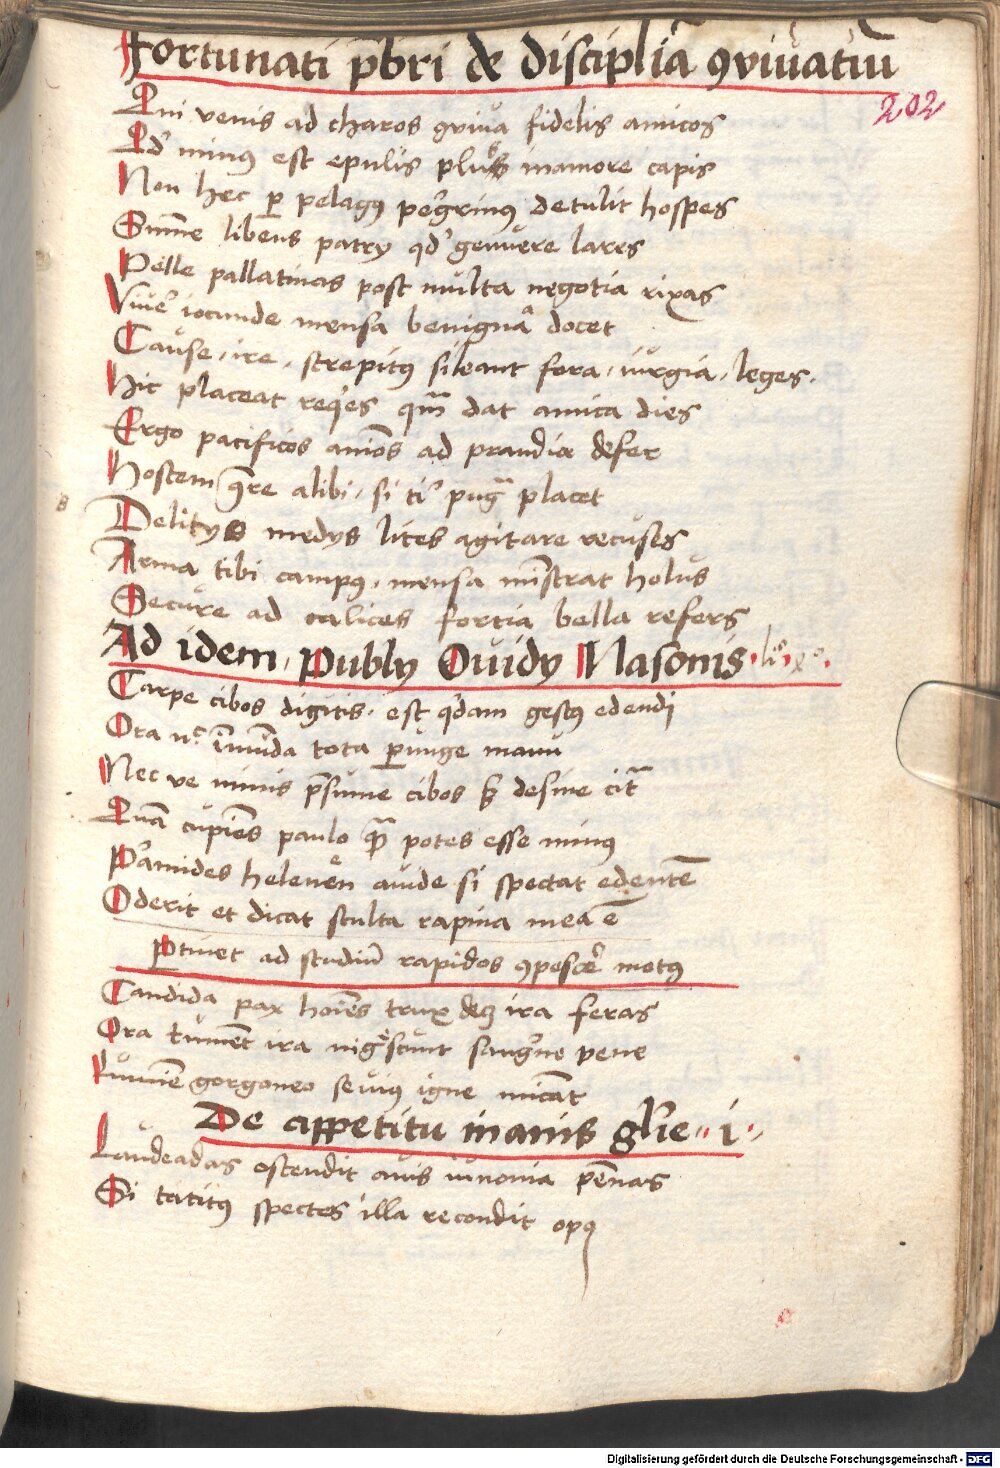 Fortunati p̄bri de disciplīa ꝯviuatiū
202
Qui venis ad charos ꝯviua fidelis amicos
Qd' minus est epulis plus inamore capis
Non hec ꝑ pelagus pegrinus detulit hospes
Sume libens patrÿ qd' genuere lares
Pelle pallatinas post multa negotia rixas
Viuer iocunde mensa benigna docet
Cause, ire, strepitus sileant fora, iurgia, leges.
Hic placeat requies qm̄ dat amica dies
Ergo pacificos anīos ad prandia defer
Hostem q̄re alibi, si ti' pugᵃ placet
Delitÿs medÿs lites agitare recuses
Arma tibi campus, mensa mīstrat holus
Secure ad calices fortia bella refers
Ad idem, Publÿ Ouidÿ Nasonis
Carpe cibos digitis. est qdam gestus edendi
Ora nᶜ īmūda tota perunge manu
Nec ve nimis p̄sume cibos sȝ desine citᵃ
Quā cupiēs paulo qᵃ potes esse minus
P'amides helenēn auide si spectat edentē
Oderit et dicat stulta rapina mea ē
Ptinet ad studiū rapidos ꝯpescer motus
Candida pax hoīes trux decȝ ira feras
Ora tumēt ira nigᵉscunt sangne vene
Lumīe gorgoneo seuius igne micāt
De appetitu inanis glīe. i.
Laudeadas ostendit auis iunonia pēnas
Si tatitus spectes illa recondit opus
Digitalisierung gefördert durch die Deutsche Forschungsgemeinschaft - DFG